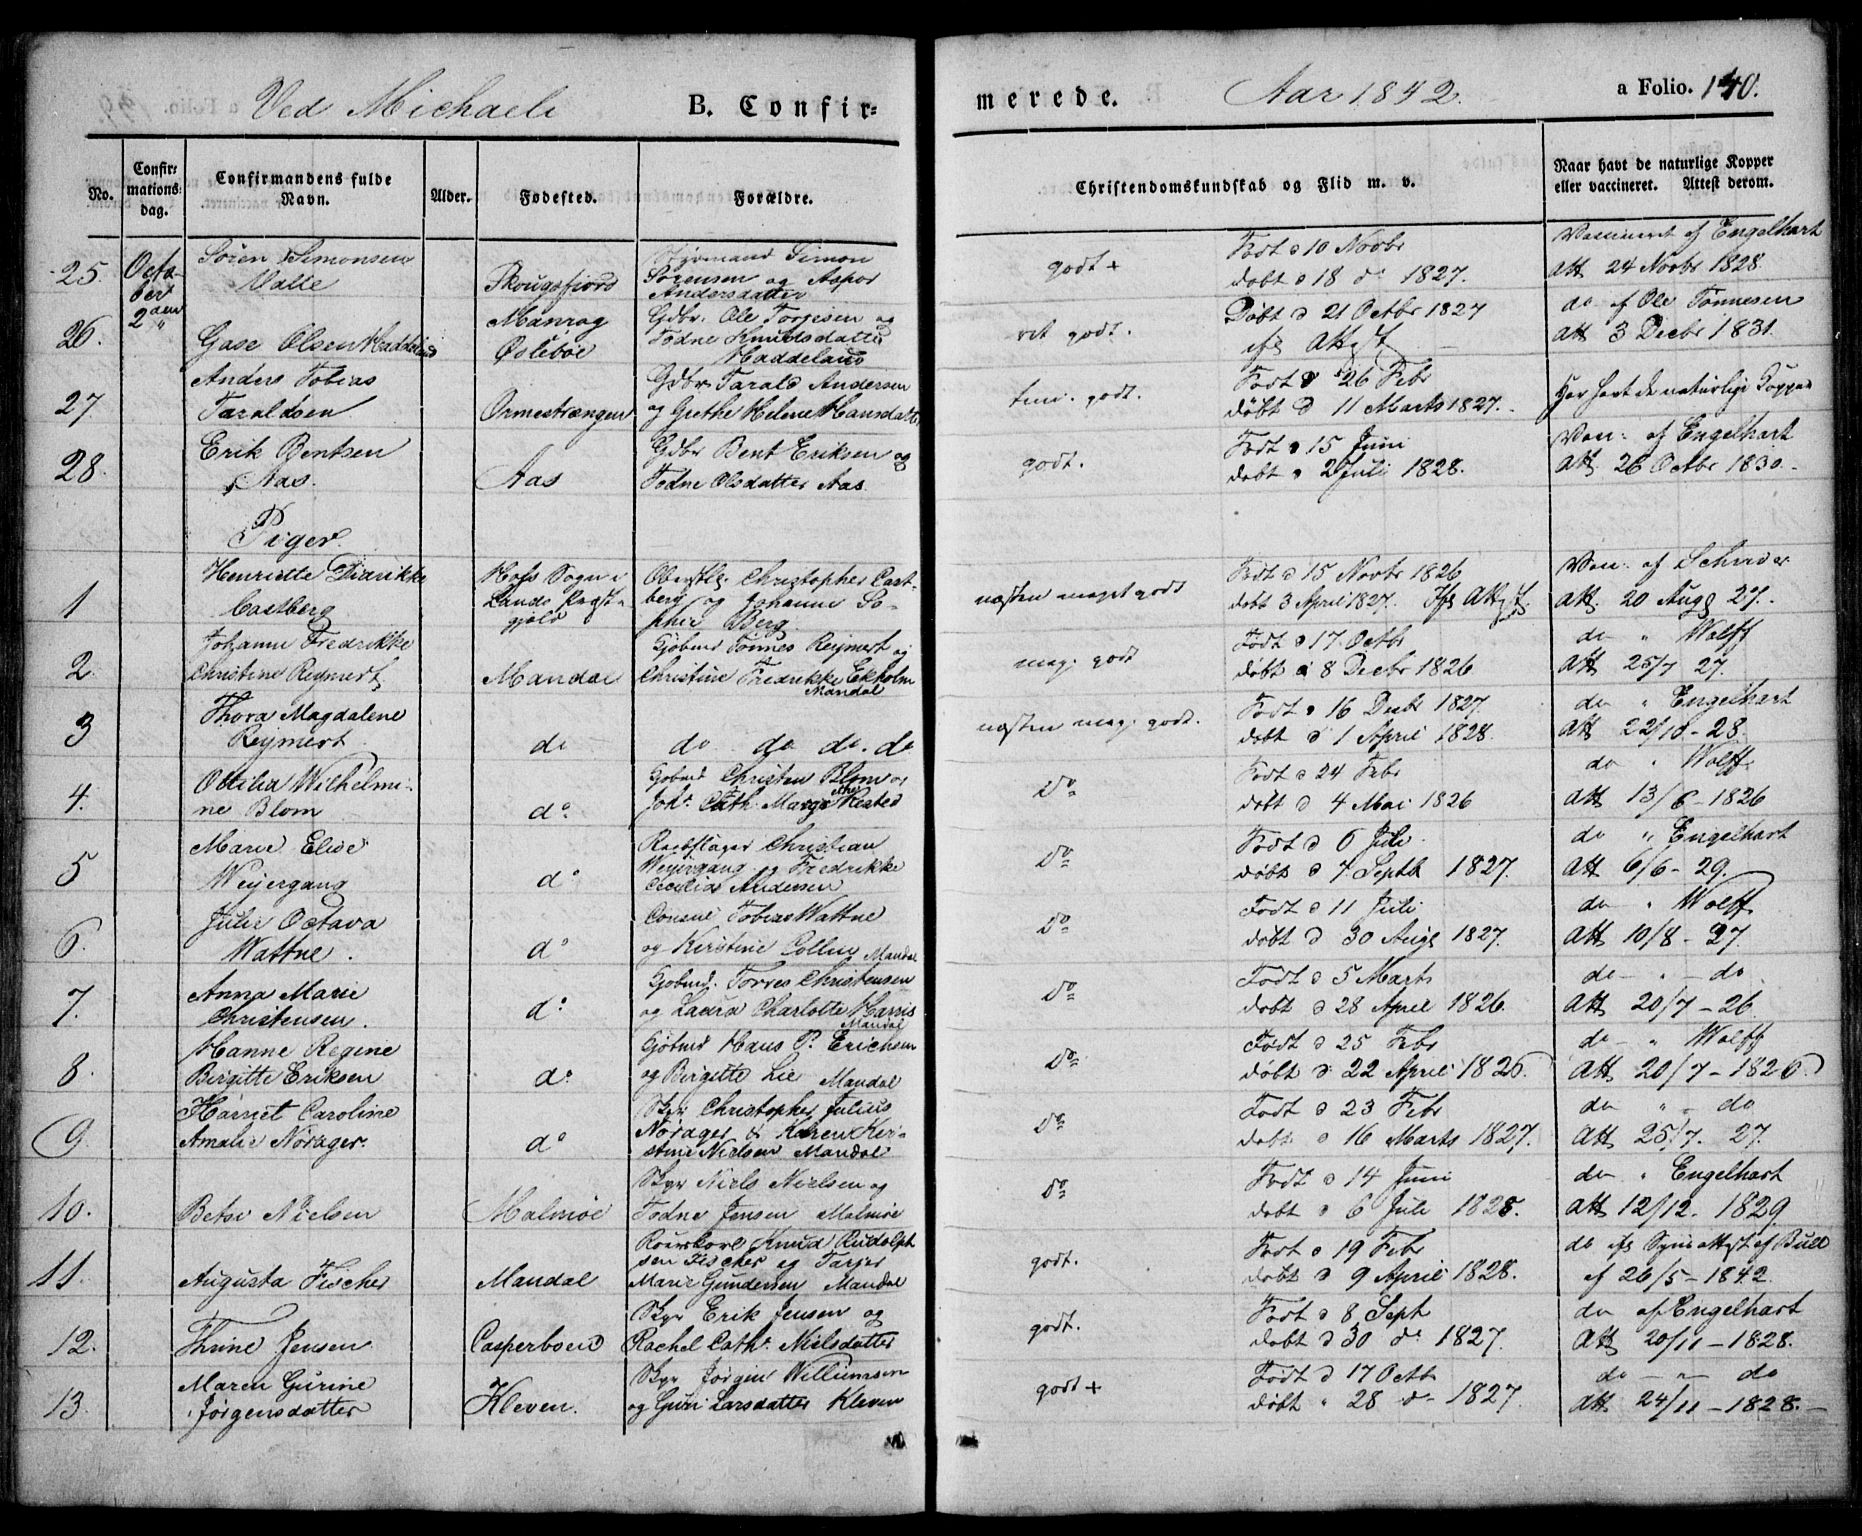 Ved Michaeli B. Confir=
merede. Aar 1842. a Folio. 140.
No. Confir= mations= dag. Confirmandens fulde Navn. Alder. Fødested. Forældre.
Christendomskundskab og Flid m. v. Naar havt de naturlige Kopper eller vaccineret. Attest derom.
25. Octo- ber 2den Sören Simonsen Valle Skougsfjord Styrmand Simon Sørensen og Aspor Andersdatter
godt + Født d 10 Novbr døbt d 18 do 1827. Vaccineret af Engelhart Att 24 Novbr 1828.
26. " Olsen Haddeland Manrag Øslebøe Gdbr. Ole Torgesen og Todne Knudsdatter Haddeland
ret godt. Døbt d 21 Octbr 1827 do af Ole Tønnesen Att 3 Decbr 1831.
27 Anders Tobias Taraldsen Ormestrængen Gdbr Tarald Andersen og Grethe Helene Hansdatter
godt. Født d 26 Febr døbt d 11 Marts 1827. Har havt de naturlige Kopper
28. Erik Bentsen Aas. Aas Gdbr Bent Eriksen og Todne Olsdatter Aas.
godt. Født d 15 Juni døbt d 2 Juli 1828. Vac: af Engelhart Att. 26 Octbr 1830.
Piger.
1 Henriette Didrikke Castberg Hofs Sogn i Lands Præst- gjeld Christopher Cast- berg og Johanne So- phie Berg.
næsten meget godt Født d 15 Novbr 1826 døbt 3 April 1827. Vac: af Att. 20 Aug 27.
2 Johanne Fredrikke Christine Reymert Mandal Gjøbmd Tønnes Reymert og Christine Fredrikke Ekholm Mandal
meg: godt Født d 17 Octbr døbt d 8 Decbr 1826 do " Wolff Att 25/7 27.
3 Thora Magdalene Reymert do do do do do
næsten meg: godt. Født d 16 Decbr 1827. døbt d 1 April 1828. do " Engelhart Att 22/10 - 28.
4. Ottilia Wilhelmi- ne Blom do. Gjøbmd Christen Blom og Joh. Cath. Margrethe Rested
do Født d 24 Febr døbt d 4 Mai 1826 do " Wolff. Att 13/6 - 1826
5 Marie Elise Weyergang do Reebslager Christian Weyergang og Fredrikke Cecilia Andersen
do Født d 6 Juli døbt d 7 Septb 1827. do " Engelhart Att 6/6 - 29.
6. Julie Octava Wattne. do Consul Tobias Wattne og Kirstine Collin Mandal
do Født d 11 Juli døbt d 30 Aug 1827. do " Wolff Att 10/8 - 27.
7. Anna Marie Christensen. do. Gjøbmd. Torres Christensen og Laura Charlotte Harris Mandal
do Født d 5 Marts døbt d 28 April 1826. do - " - do Att 20/7 - 26.
8. Hanne Regine Birgitte Eriksen do. Gjøbmd Hans P. Erichsen og Birgitte Lie Mandal
do Født d 25 Febr døbt d 22 April 1826. do - " Wolff Att 20/7 - 1826.
9. Harriet Caroline Amalie Nørager. do Skpr Christopher Julius Nørager & Karen Kir- stine Nielsen Mandal
do Født d 23 Febr døbt d 16 Marts 1827. do " - do Att 25/7. 27.
10. Betsi Nielsen Malmøe Skpr Niels Nielsen og Todne Jensen Malmøe
do Født d 14 Juni døbt d 6 Juli 1828. do " Engelhart Att 12/12. 1829
11. Augusta Fischer Mandal Knud Rudolph sen Fischer og Tarjer Marie Gundersen Mandal
godt. Født d 19 Febr døbt d 9 April 1828. do af Bull af 26/5 - 1842.
12. Thrine Jensen Casperboen Skpr Erik Jensen og Rachel Cath. Nielsdatter
godt. Født d 8 Sept døbt d 30 do 1827. do af Engelhart Att 20/11 - 1828.
13. Maren Gurine Jørgensdatter Kleven. Skpr Jørgen Willumsen og Guri Larsdatter Kleven
godt + Født d 17 Octb døbt " 28 do 1827. do - " - do Att 24/11 - 1828.